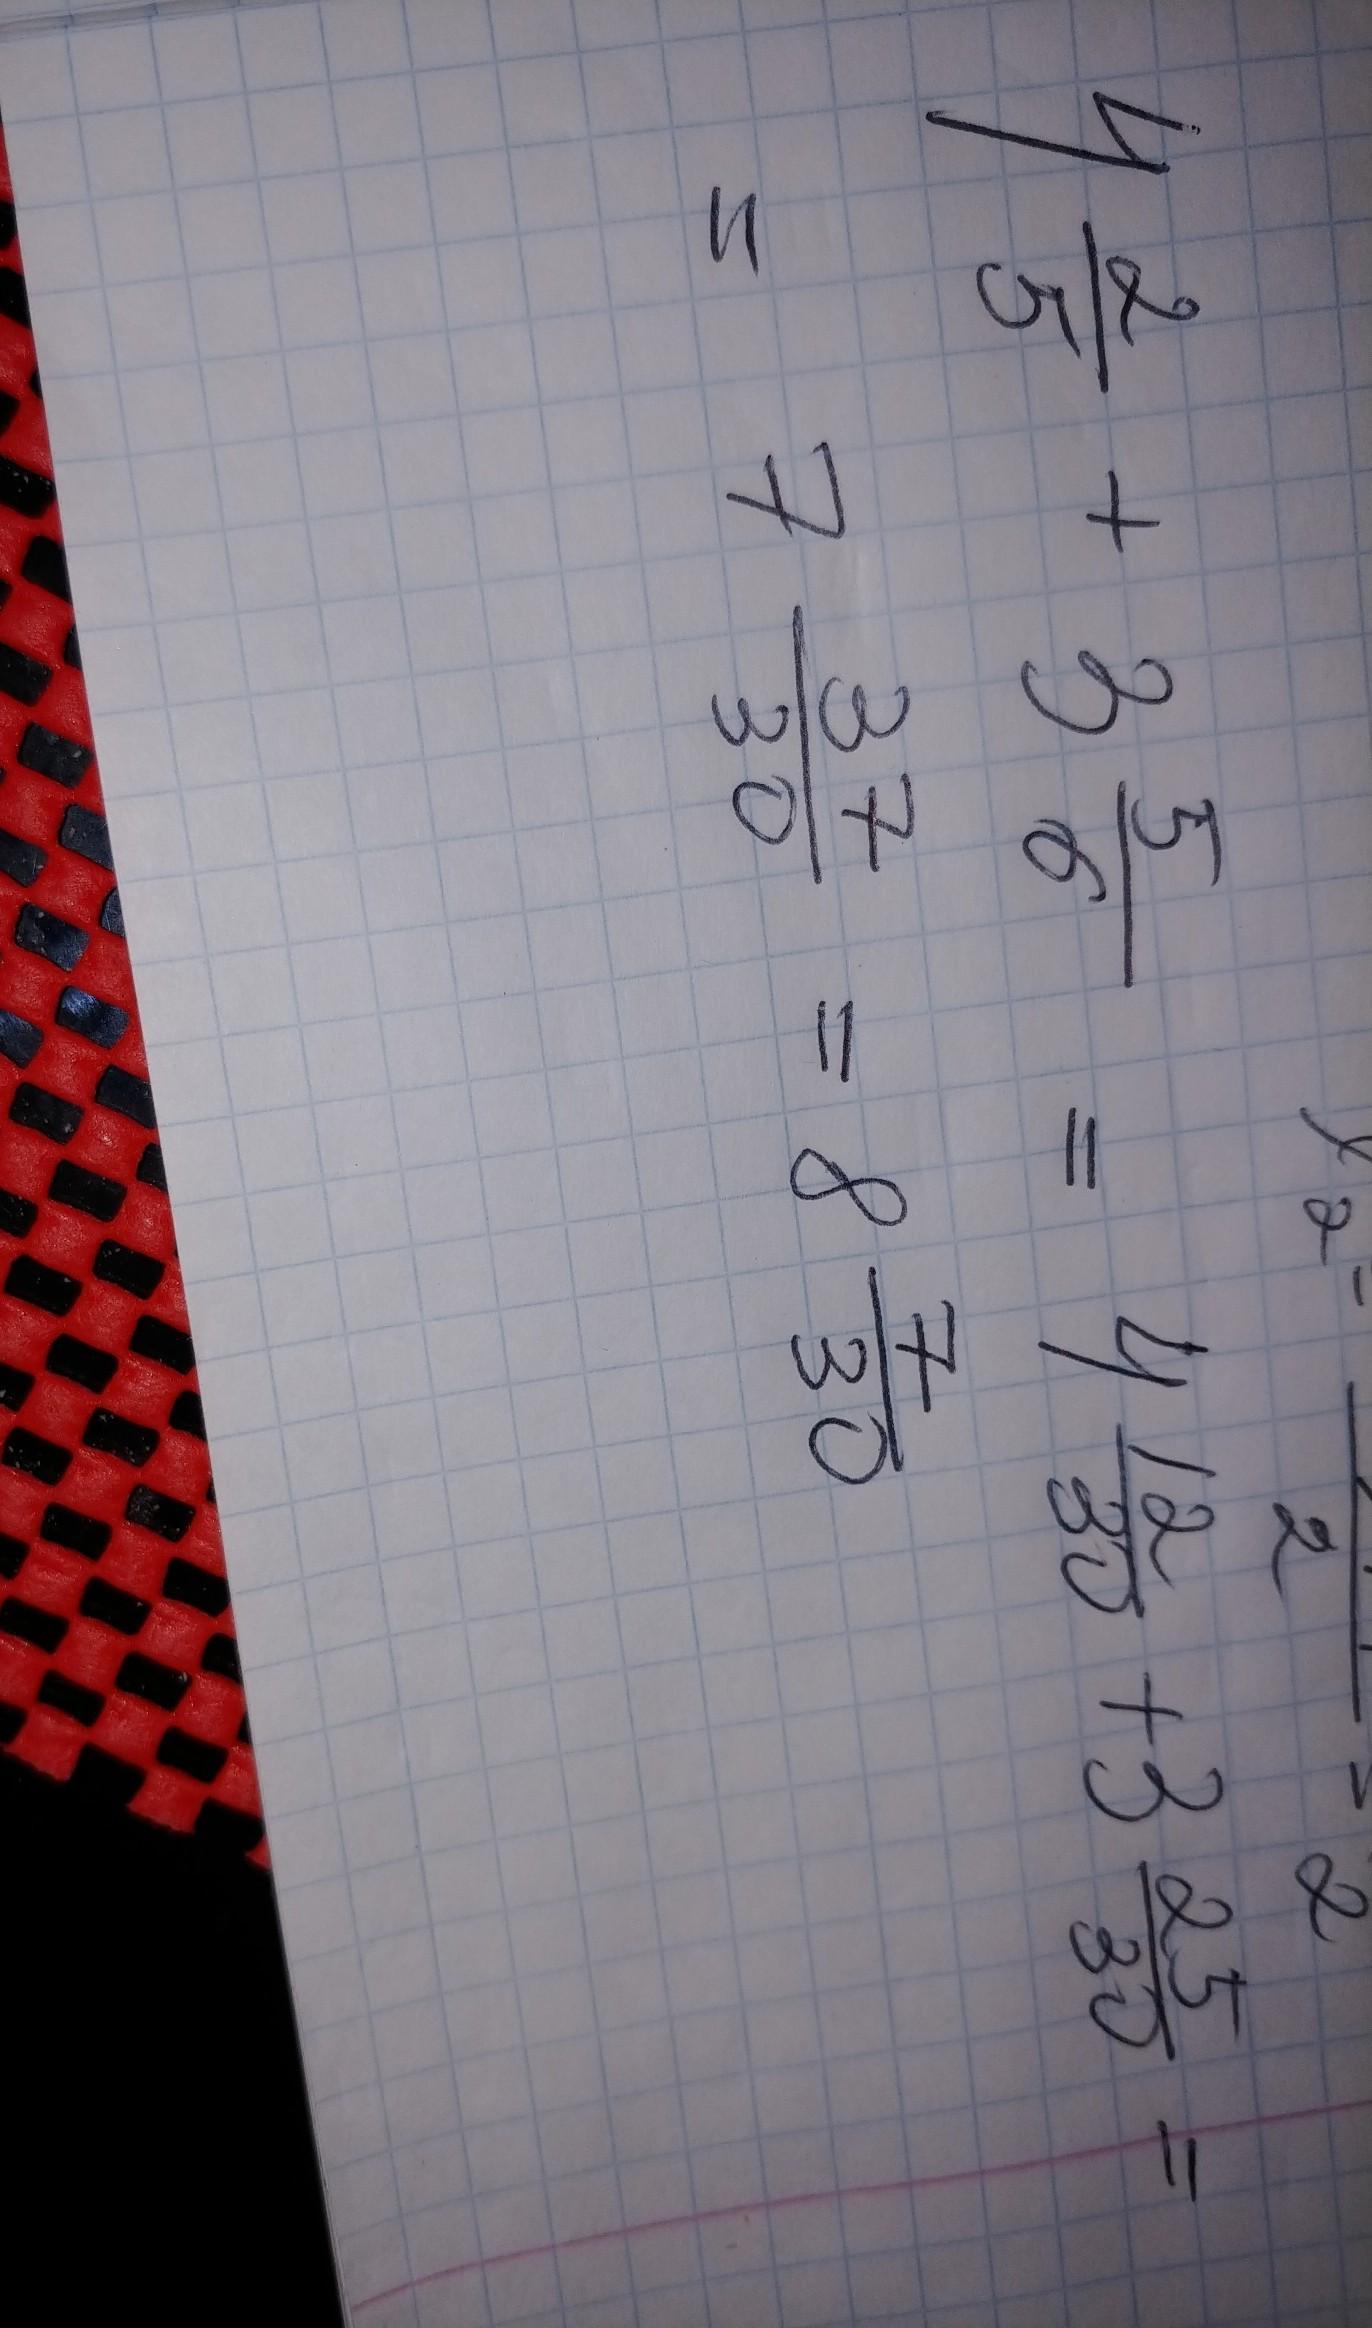 4 2/5 + 3 5/6 = 4 12/30 + 3 25/30 =
= 7 37/30 = 8 7/30